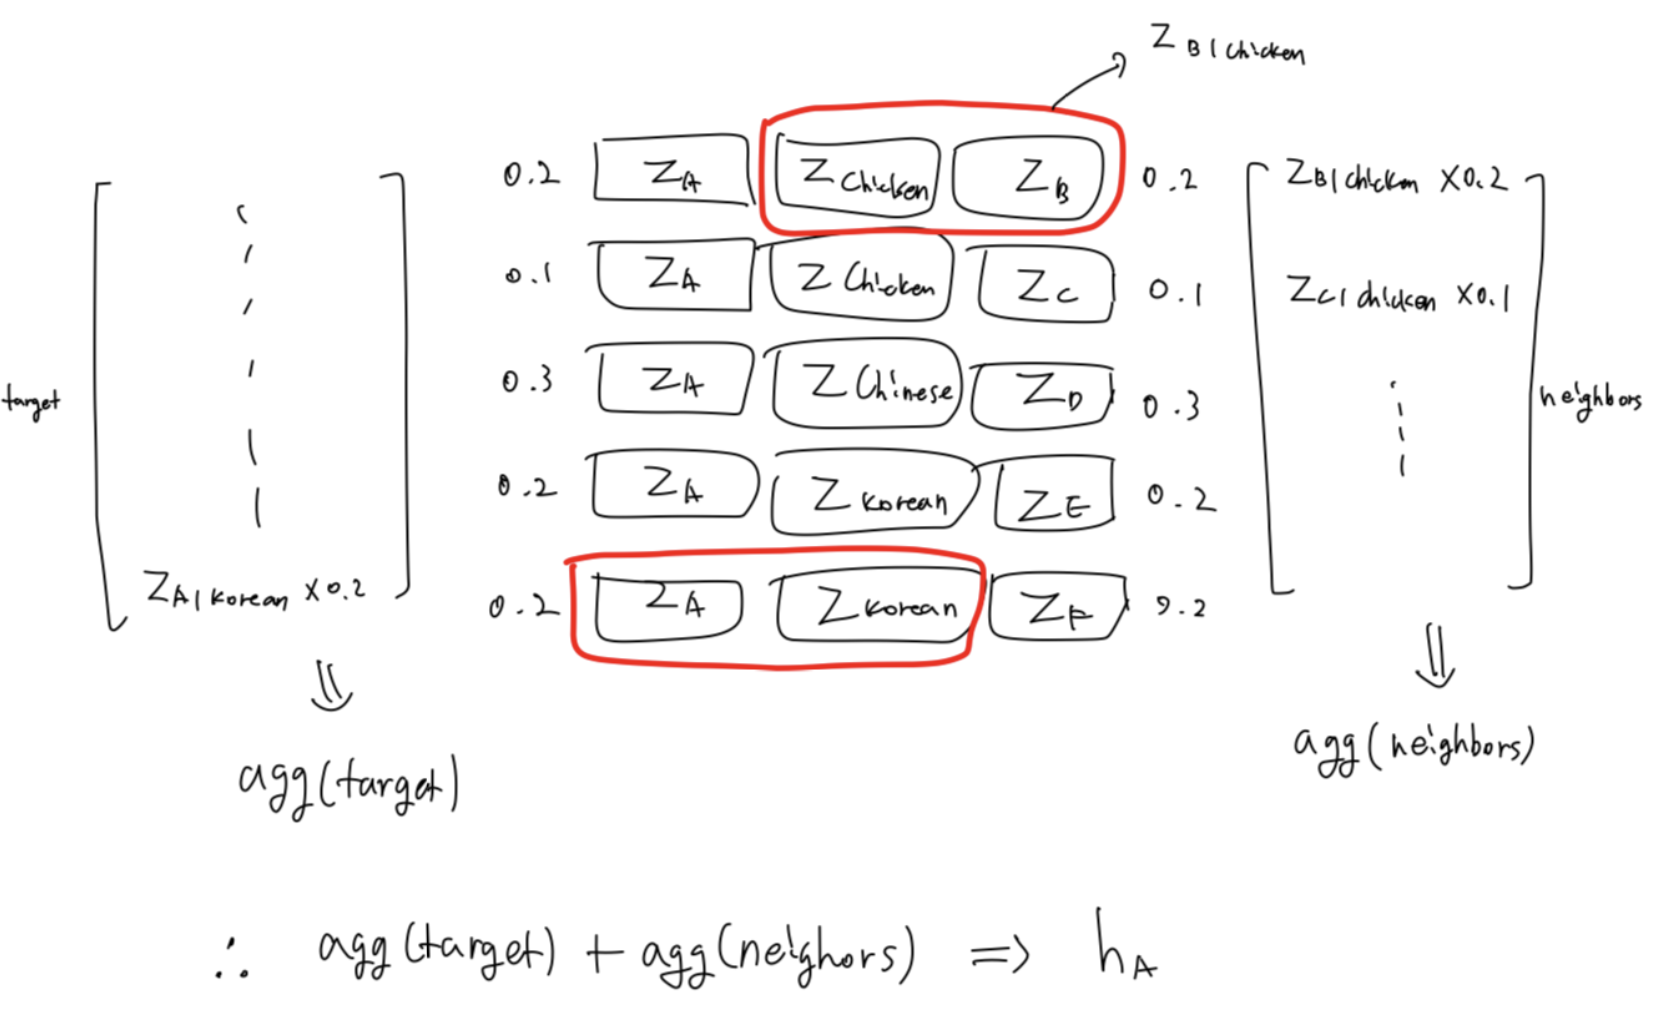 Z B|chicken
0.2 Z A Z chicken Z B 0.2
0.1 Z A Z chicken Z C 0.1
0.3 Z A Z chinese Z D 0.3
0.2 Z A Z korean Z E 0.2
0.2 Z A Z korean Z F 0.2
target
Z A|korean X0.2
agg(target)
Z B|chicken X0.2
Z C|chicken X0.1
neighbors
agg(neighbors)
∴ agg(target) + agg(neighors) => h A